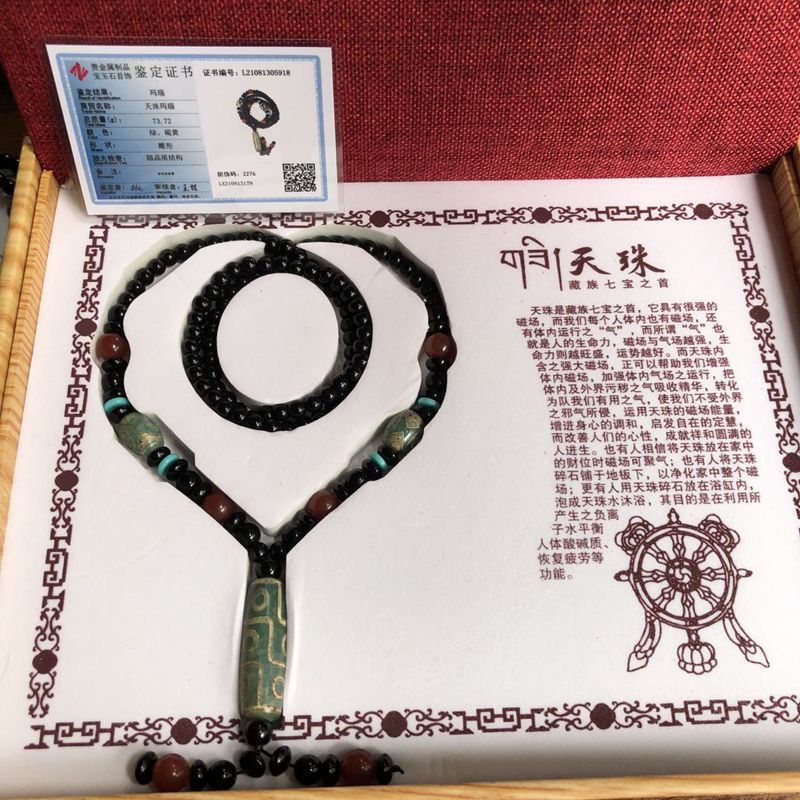 贵金属制品
宝玉石首饰 鉴定证书 证书编号：L21081305918
鉴定结果： 玛瑙
Result of Identification
商贸名称： 天珠玛瑙
Trade Name
总质量(g)： 73.72
Total Mass
颜 色： 绿、褐黄
Color
形 状： 雕形
Shape
放大检查： 隐晶质结构
Magnification Test
备 注： ****
Remarks
防伪码：2276
鉴定者： 审核者：
LX210813179
天珠
藏族七宝之首
天珠是藏族七宝之首，它具有很强的
磁场，而我们每个人体内也有磁场，还
有体内运行之“气”，而所谓“气”也
就是人的生命力，磁场与气场越强，生
命力则越旺盛，运势越好。而天珠内
含之强大磁场，正可以帮助我们增强
体内磁场，加强体内气场之运行，把
体内及外界污秽之气吸收精华，转化
为队我们有用之气，使我们不受外界
之邪气所侵，运用天珠的磁场能量，
增进身心的调和，启发自在的定慧，
而改善人们的心性，成就祥和圆满的
人进生。也有人相信将天珠放在家中
的财位时磁场可聚气；也有人将天珠
碎石铺于地板下，以净化家中整个磁
场；更有人用天珠碎石放在浴缸内，
泡成天珠水沐浴，其目的是在利用所
产生之负离
子水平衡
人体酸碱质、
恢复疲劳等
功能。